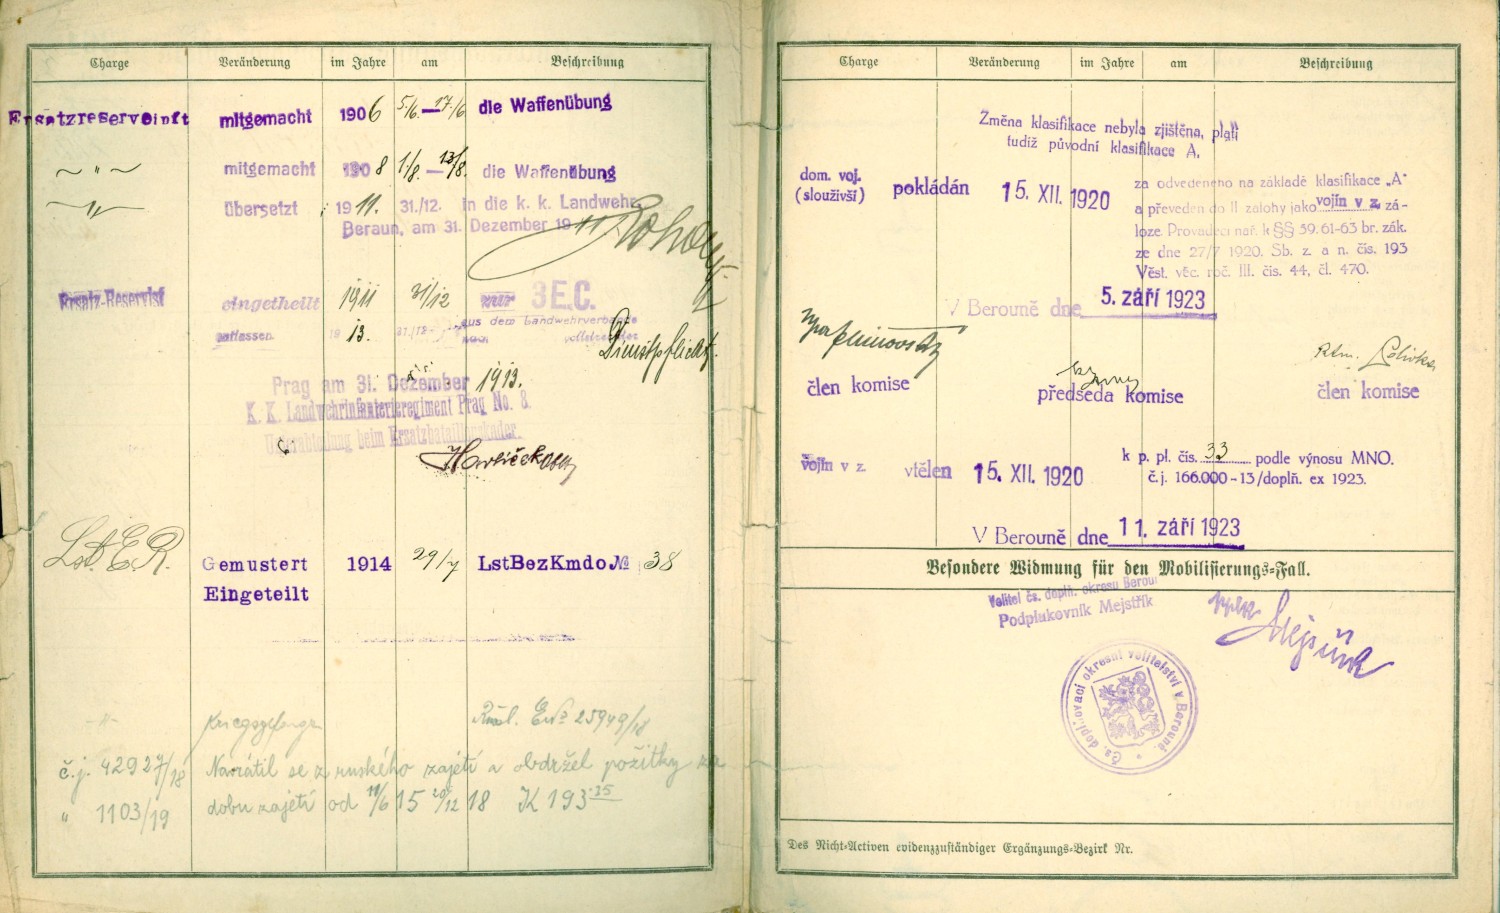 Charge Veränderung im Jahre am Beschreibung
Ersatzreserveinft mitgemacht 1906 5./6. — 17./6 die Waffenübung
~ " ~ mitgemacht 1908 1/8. — 13/8. die Waffenübung
~ " ~ übersetzt 1911. 31./12. in die k. k. Landwehr.
Beraun, am 31. Dezember 1911
Ersatz-Reservist eingetheilt 1911 31/12 nur 3E.C.
entlassen. 1913. 31./12. aus dem Landwehrverbande
nach vollstreckter Dienstpflicht.
Prag am 31. Dezember 1913.
K. K. Landwehrinfanterieregiment Prag No. 8.
Unterabteilung beim Ersatzbataillonskader.
Lst. E. R. Gemustert 1914 29/7 LstBezKmdo. № 38
Eingeteilt
-"- Kriegsgefangen E№ 25949/18
č.j. 42927/18 Navrátil se z ruského zajetí a obdržel požitky za
" 1103/19 dobu zajetí od 11/6 15 20/12 18 K 193.35
Charge Veränderung im Jahre am Beschreibung
Změna klasifikace nebyla zjištěna, platí
tudíž původní klasifikace A.
dom. voj.
(sloužívší) pokládán 15. XII. 1920 za odvedeného na základě klasifikace „A"
a převeden do II zálohy jako vojín v z. zá-
loze. Prováděcí nař. k §§ 59. 61-63 br. zák.
ze dne 27/7 1920. Sb. z. a n. čís. 193
Věst. věc. roč. III. čís. 44, čl. 470.
V Berouně dne 5. září 1923
člen komise předseda komise člen komise
vojín v z. vtělen 15. XII. 1920 k p. pl. čís. 33 podle výnosu MNO.
č.j. 166.000-13/doplň. ex 1923.
V Berouně dne 11. září 1923
Besondere Widmung für den Mobilisierungs=Fall.
Velitel čs. doplň. okresu Beroun
Podplukovník Mejstřík
pplk Mejstřík
Čs. doplňovací okresní velitelství v Berouně.
Des Nicht=Activen evidenzzuständiger Ergänzungs=Bezirk Nr.